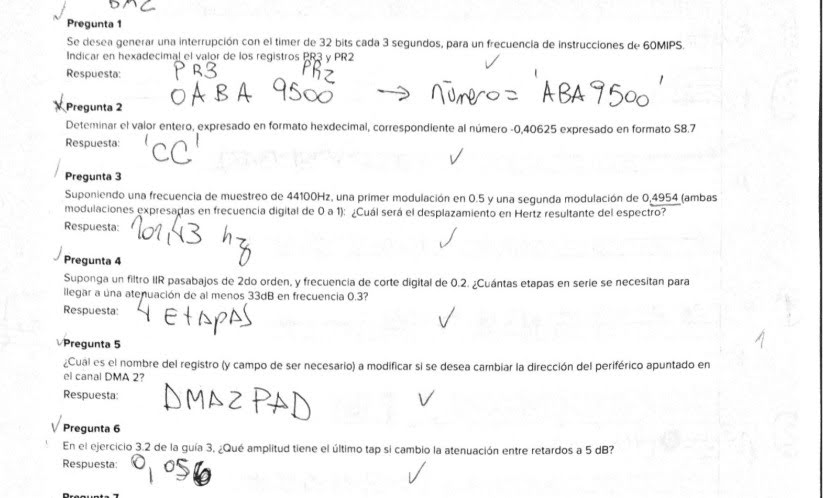 Pregunta 1
Se desea generar una interrupción con el timer de 32 bits cada 3 segundos, para un frecuencia de instrucciones de 60MIPS.
Indicar en hexadecimal el valor de los registros PR3 y PR2
Respuesta: PR3 PR2
0ABA 9500 → número = 'ABA9500'
Pregunta 2
Deteminar el valor entero, expresado en formato hexdecimal, correspondiente al número -0,40625 expresado en formato S8.7
Respuesta: 'CC'
Pregunta 3
Suponiendo una frecuencia de muestreo de 44100Hz, una primer modulación en 0.5 y una segunda modulación de 0,4954 (ambas
modulaciones expresadas en frecuencia digital de 0 a 1): ¿Cuál será el desplazamiento en Hertz resultante del espectro?
Respuesta: 101,43 hz
Pregunta 4
Suponga un filtro IIR pasabajos de 2do orden, y frecuencia de corte digital de 0.2. ¿Cuántas etapas en serie se necesitan para
llegar a una atenuación de al menos 33dB en frecuencia 0.3?
Respuesta: 4 EtApAS
Pregunta 5
¿Cuál es el nombre del registro (y campo de ser necesario) a modificar si se desea cambiar la dirección del periférico apuntado en
el canal DMA 2?
Respuesta: DMA2PAD
Pregunta 6
En el ejercicio 3.2 de la guía 3, ¿Qué amplitud tiene el último tap si cambio la atenuación entre retardos a 5 dB?
Respuesta: 0,056
Pregunta 7